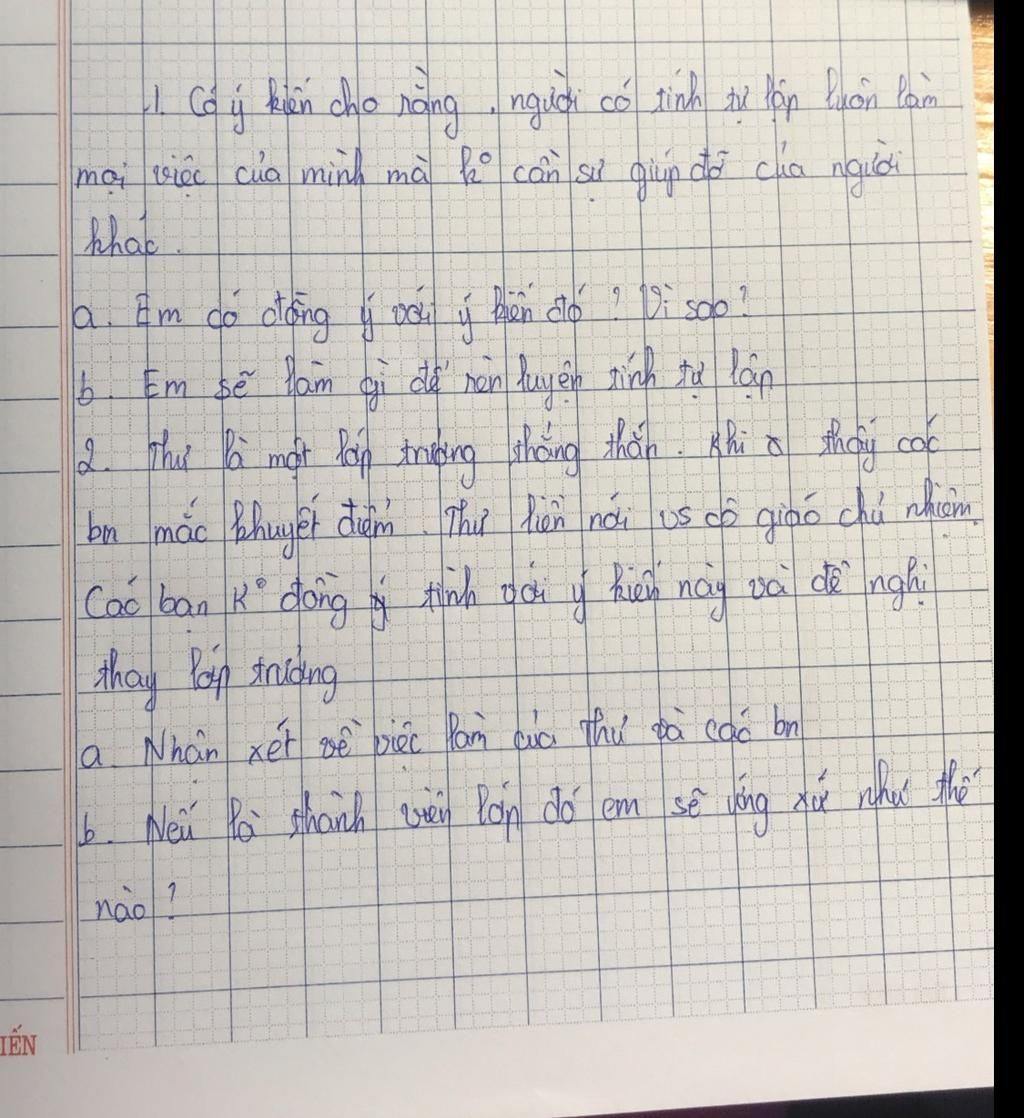 1. Có ý kiến cho rằng, người có tính tự lập luôn làm
mọi việc của mình mà kº cần sự giúp đỡ của người
khác.
a. Em có đồng ý với ý kiến đó? Vì sao?
b. Em sẽ làm gì để rèn luyện tính tự lập
2. Thư là một lớp trưởng thẳng thắn. Khi thấy các
bn mắc khuyết điểm. Thư liền nói vs cô giáo chủ nhiệm.
Các bạn Kº đồng tình với ý kiến này và đề nghị
thay lớp trưởng
a. Nhận xét về việc làm của Thư và các bn
b. Nếu là thành viên lớp đó em sẽ ứng xử như thế
nào?
IẾN